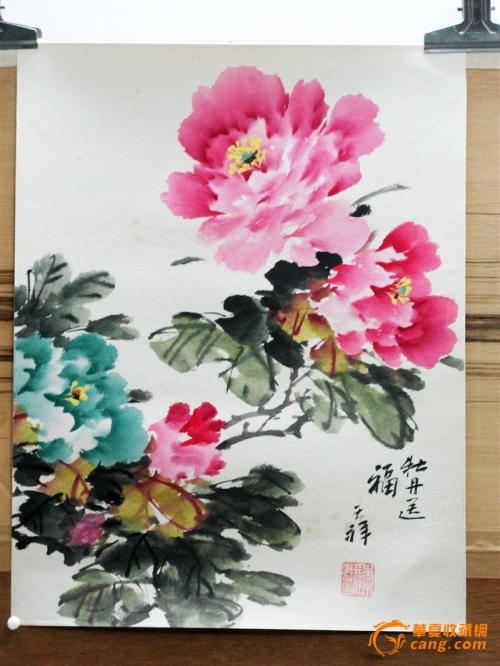 牡丹送
福
天祥
華夏收藏網
cang.com